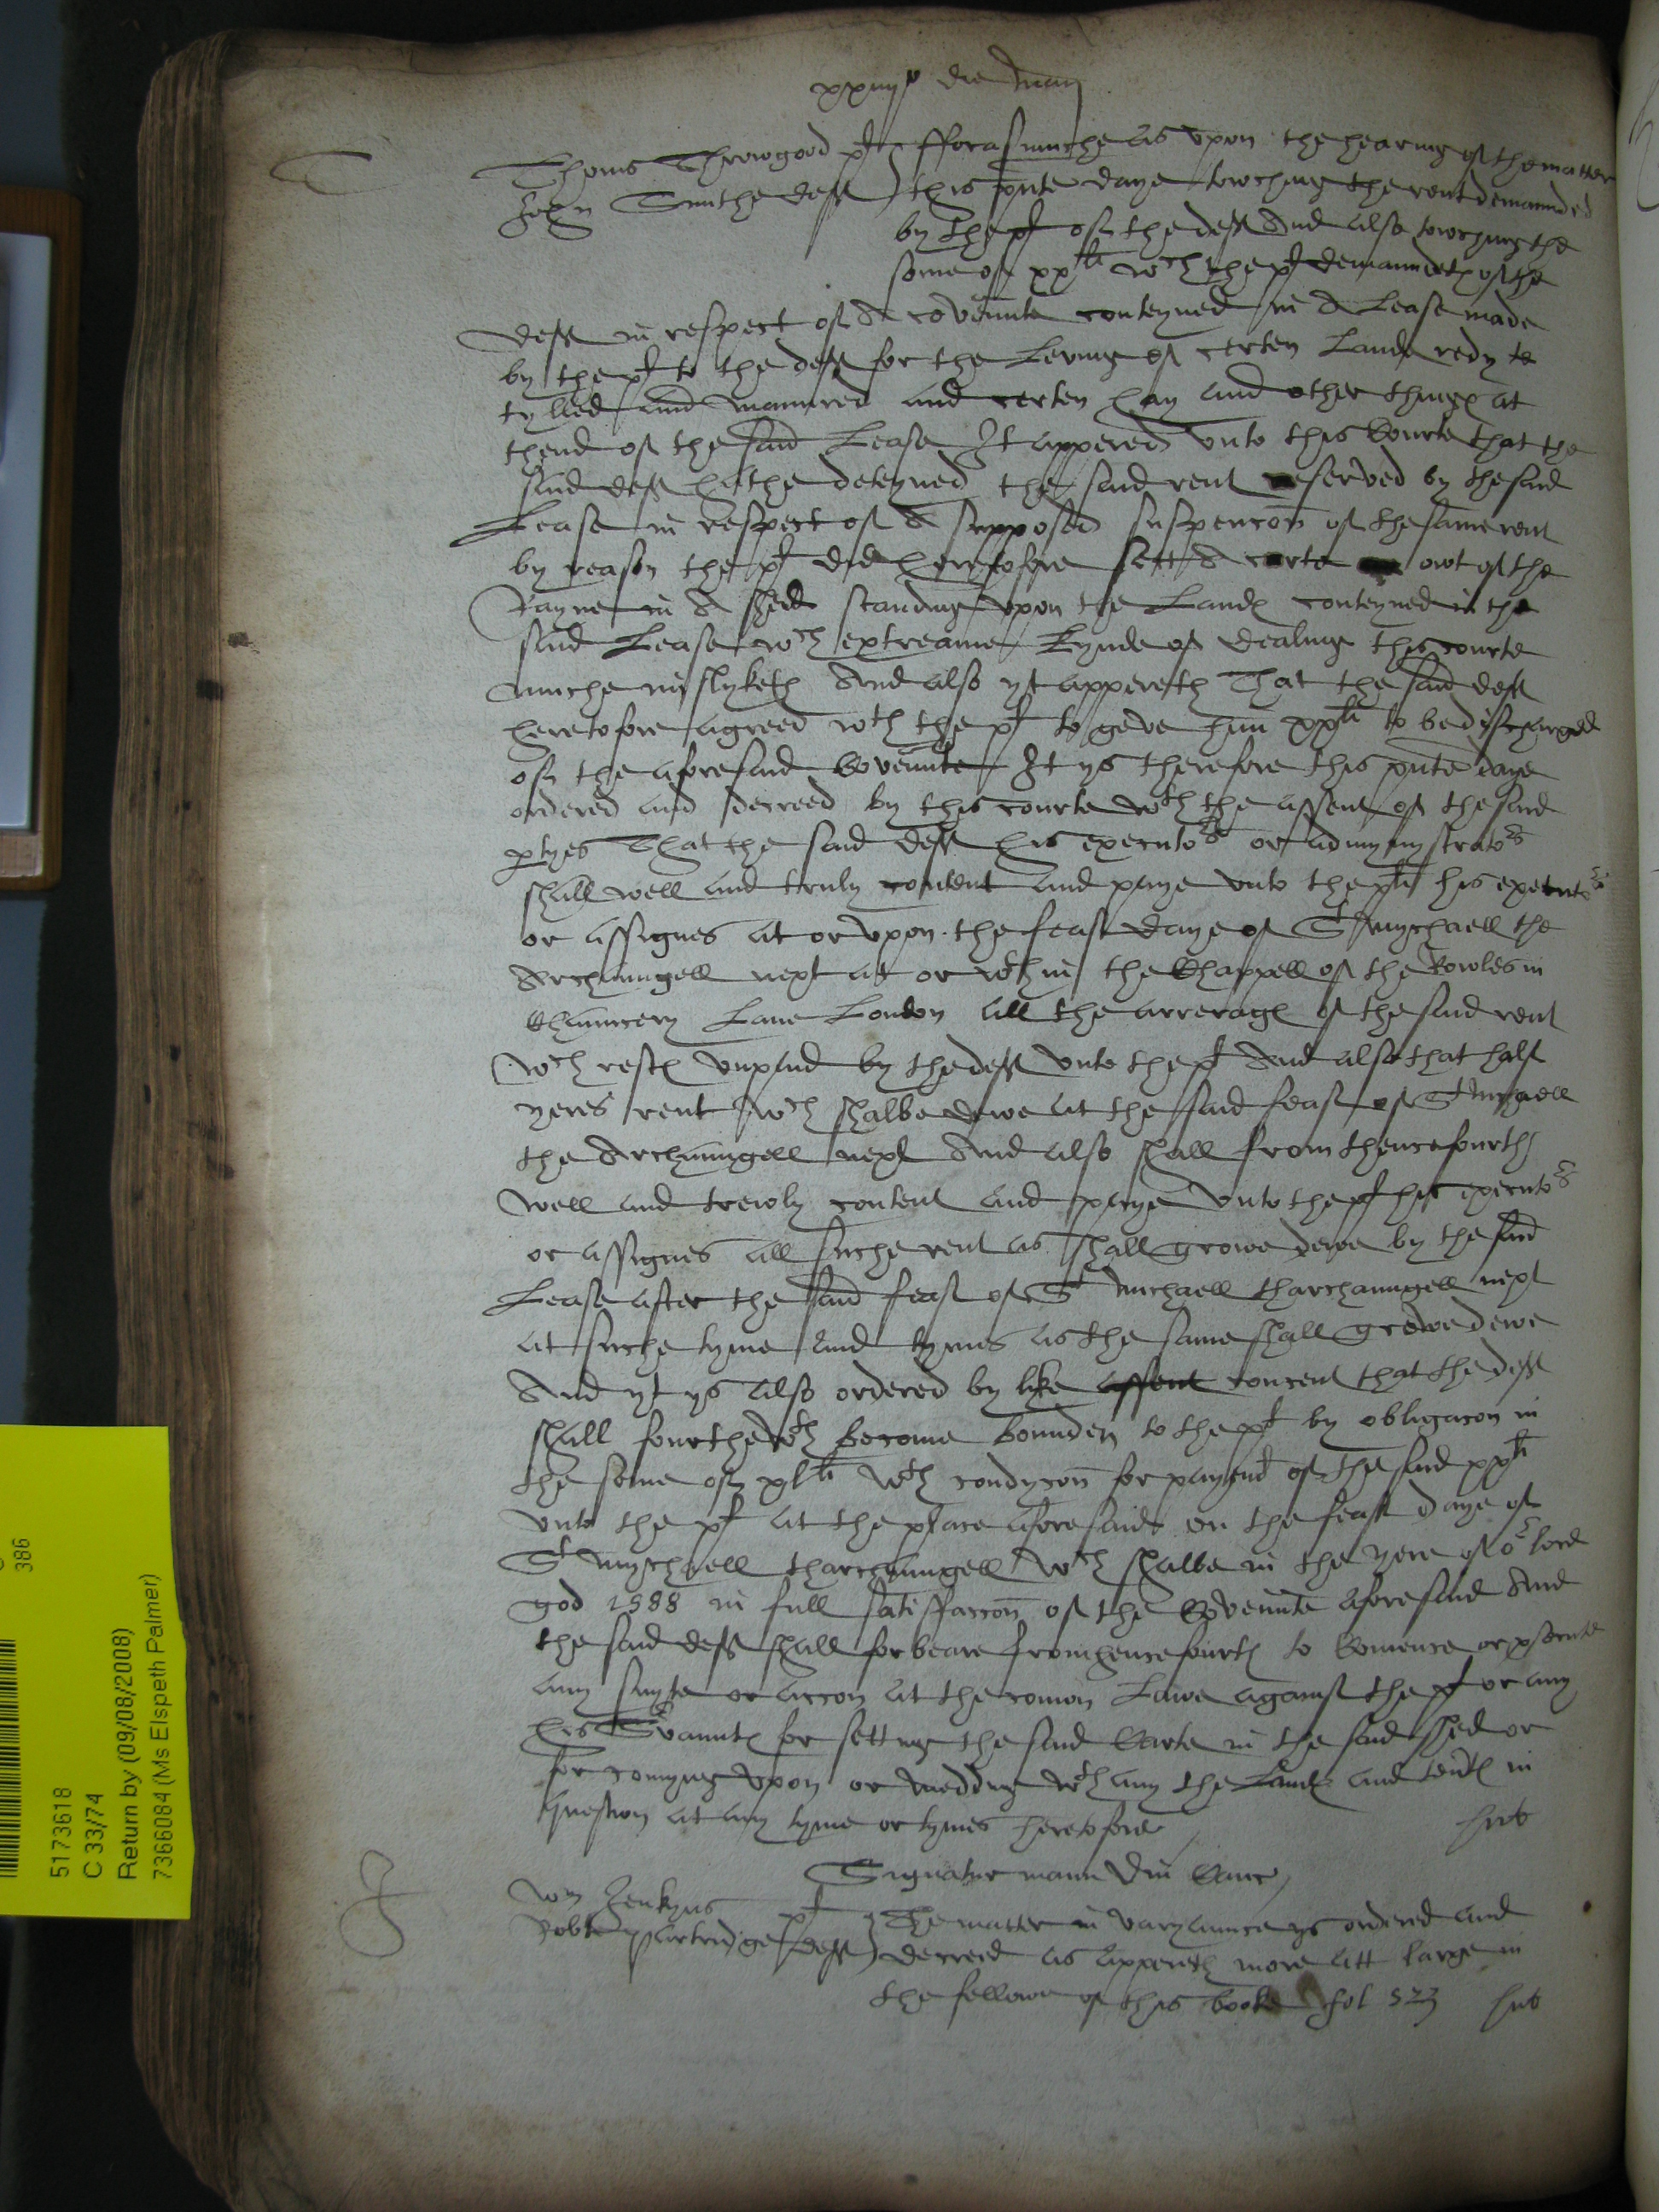 xxiiijº die maij
Thomas Throwgood pl } fforasmuche as upon the hearing of the matter
John Smithe deft } this pnte daye towching the rent demaunded
by the pl of the deft And also towching the
some of xxli wch the pl demaundeth of the
deft in respect of A covennte conteyned in A Lease made
by the pl to the deft for the Leving of certen Lande redy to
tylled and manured and certen hay and other things at
thend of the said Lease It appered unto this Courte that the
said deft hathe deteyned the said rent reserved by the said
Lease in respect of A supposed suspencon of the same rent
by reason the pl did heretofore sett A carte owt of the
Rayne in A shedd standing upon the Landes conteyned in the
said Lease wch extreame kynde of dealing this courte
muche myslyketh And also yt appereth That the said deft
heretofore agreed wth the pl to geve him xxli to be discharged
of the aforesaid Covennte It ys therefore this pnte daye
ordered and decreed by this courte wth the assent of the said
ptyes That the said deft his executors or admynystrators
shall well and truly content and paye unto the pl his executors
or assignes at or upon the feast daye of St Mychaell the
Archaungell next at or wthin the Chappell of the Rowles in
Chauncery Lane London all the arrerages of the said rent
wch resteth unpaid by the deft unto the pl And also that half
yeres rent wch shalbe dewe at the said feast of St Michaell
the Archaungell next And also shall from thencefourth
well and trewly content and paye unto the pl his executors
or assignes all suche rent as shall growe dewe by the said
Lease after the said feast of St Michaell tharchaungell next
at suche tyme and tymes as the same shall growe dewe
And yt ys also ordered by like assent concent that the deft
shall fourthewth become bounden to the pl by obligacon in
the some of xlli wth condycon for payent of the said xxli
unto the pl at the place aforesaide on the feast daye of
St Mychaell tharchaungell wch shalbe in the yere of or lord
god 1588 in full satisfaccon of the Covennte aforesaid And
the said deft shall forbeare from hencefourth to Comence or psecute
any suyte or accon at the comon Lawe against the pl or any
his Svauntes for setting the said Carte in the said shed or
for comyng upon or medding wth any the Landes and tentes in
question at any tyme or tymes heretofore
Signatur manu Dni Canc
Wm Jenkyns pl } The matter in varyaunce ys ordered and
Robte Partridge deft } decreed as appereth more att large in
the fellowe of this booke fol 523
386
5173618
C 33/74
Return by (09/08/2008)
7366084 (Ms Elspeth Palmer)